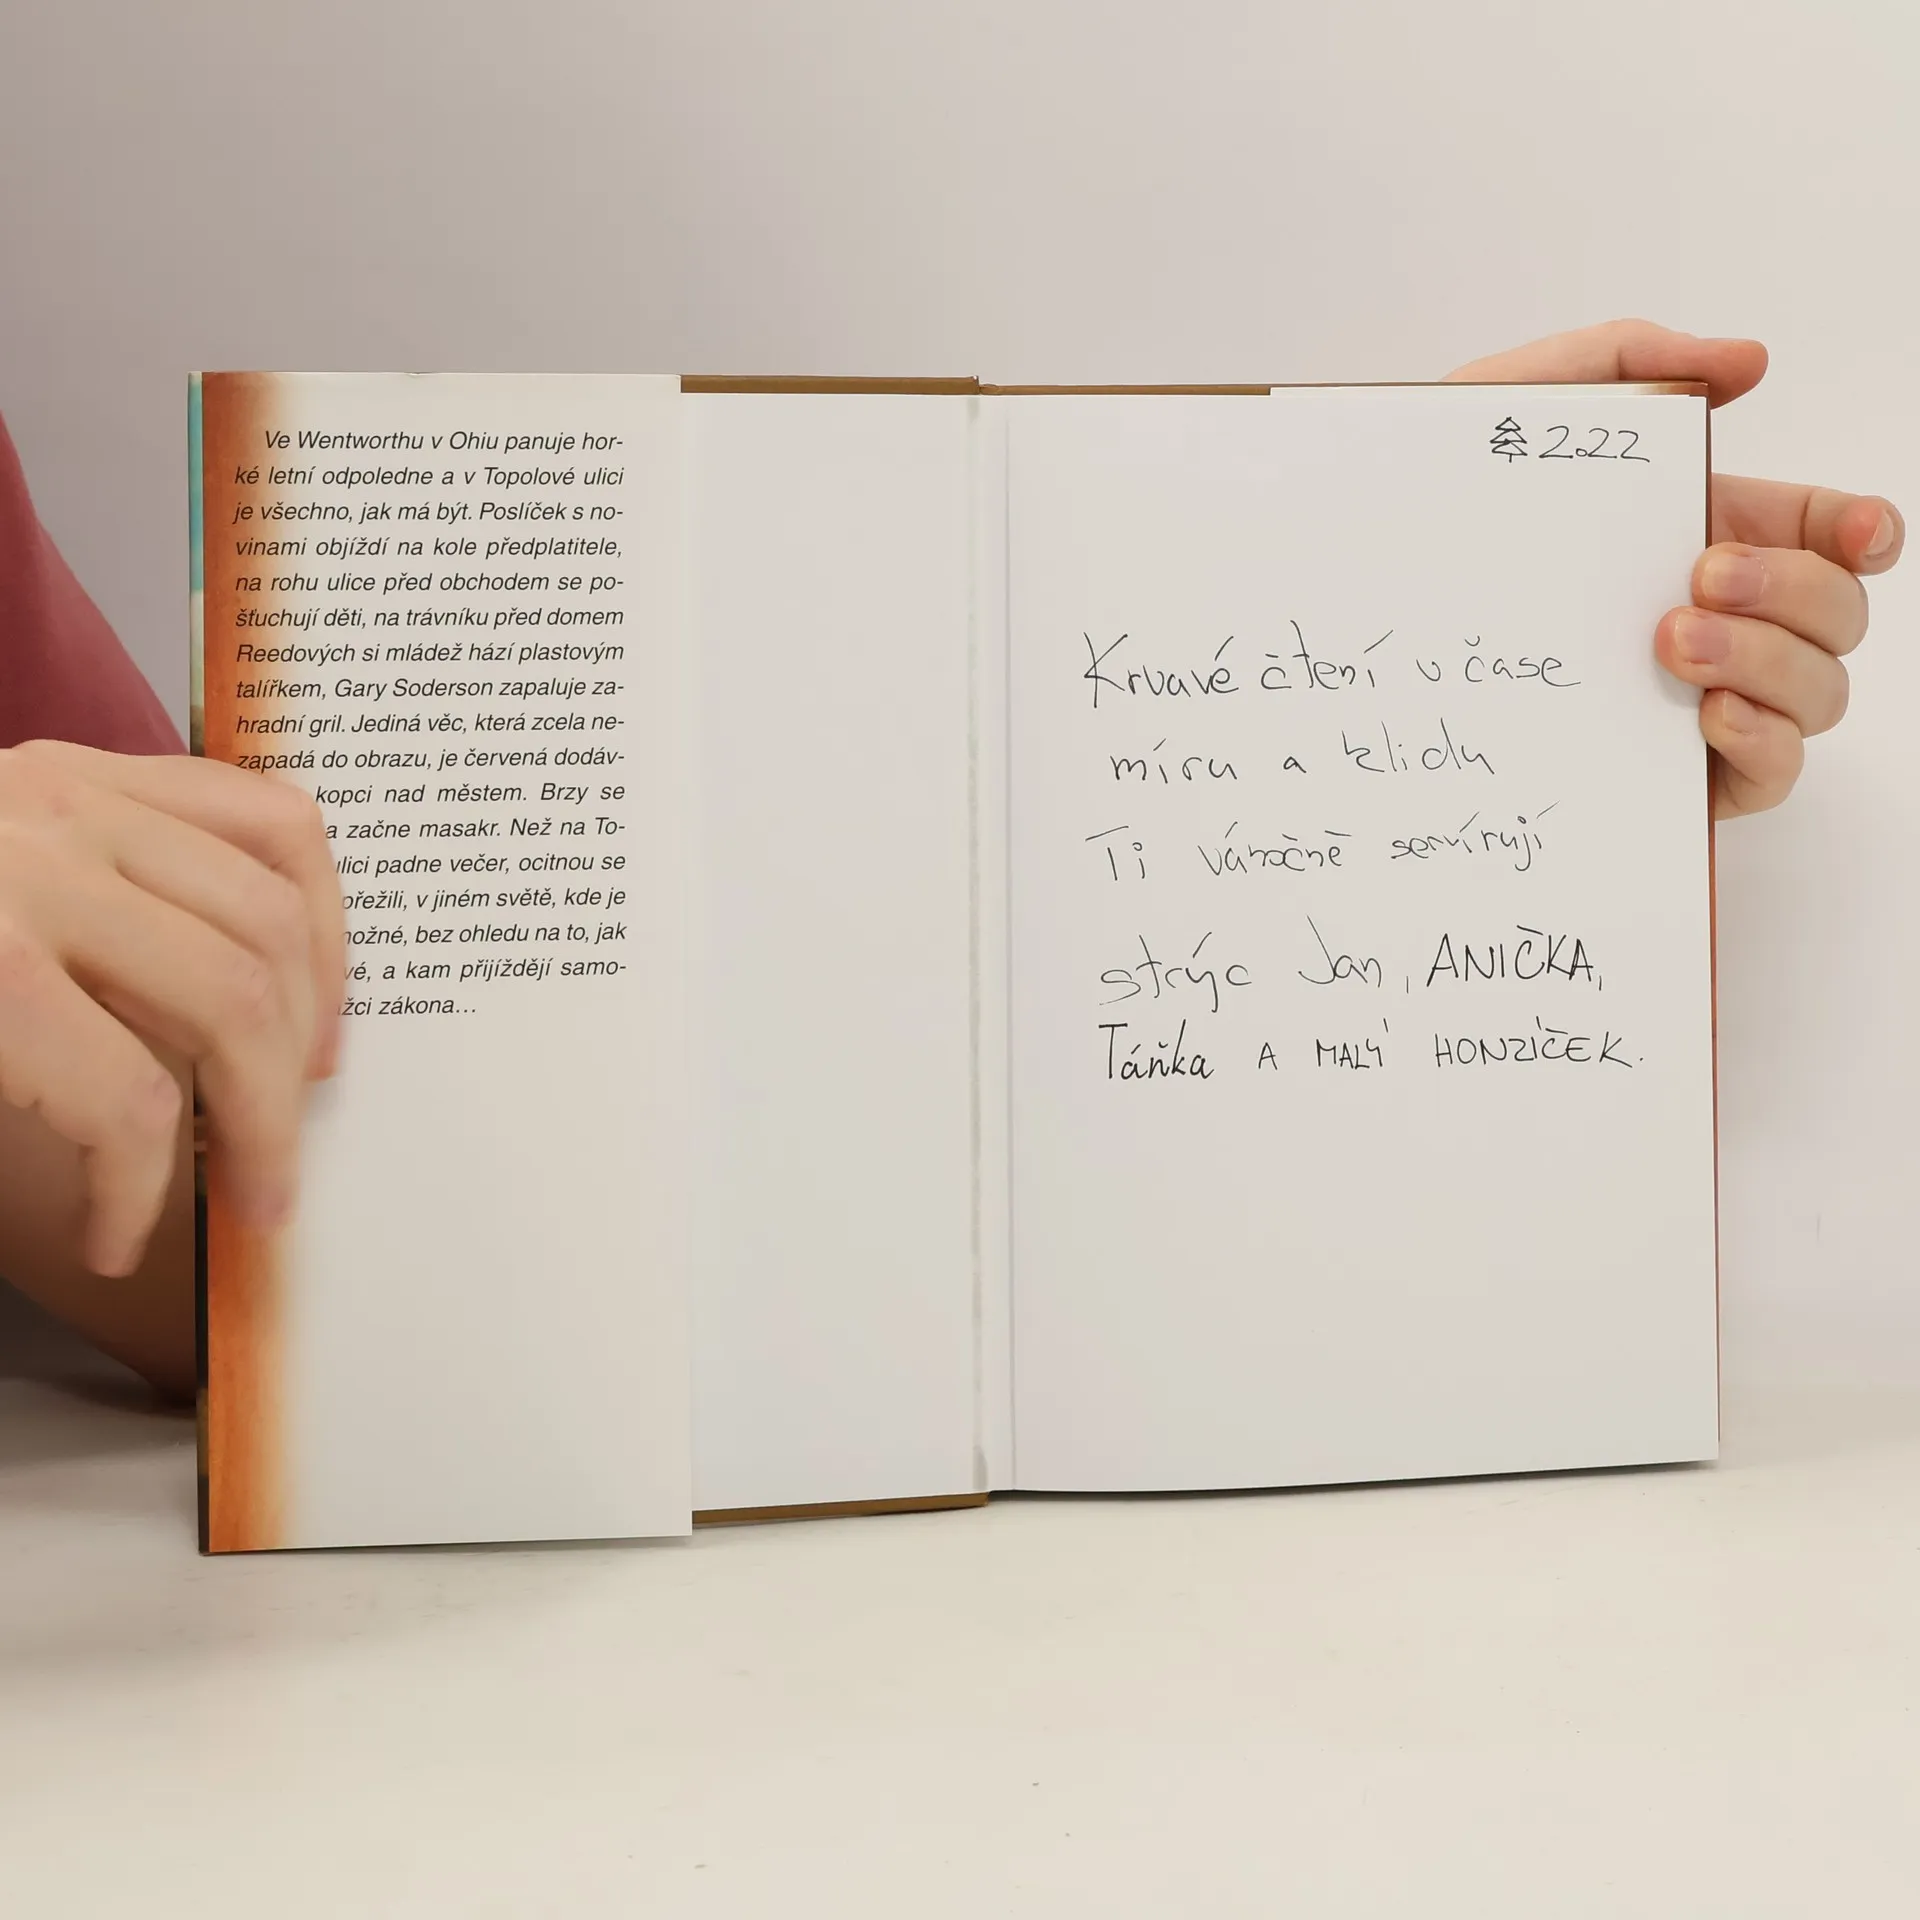 Ve Wentworthu v Ohiu panuje hor-
ké letní odpoledne a v Topolové ulici
je všechno, jak má být. Poslíček s no-
vinami objíždí na kole předplatitele,
na rohu ulice před obchodem se po-
šťuchují děti, na trávníku před domem
Reedových si mládež hází plastovým
talířkem, Gary Soderson zapaluje za-
hradní gril. Jediná věc, která zcela ne-
zapadá do obrazu, je červená dodáv-
kopci nad městem. Brzy se
a začne masakr. Než na To-
padne večer, ocitnou se
v jiném světě, kde je
bez ohledu na to, jak
a kam přijíždějí samo-
zákona...
2.22
Krvavé čtení v čase
míru a klidu
Ti vánočně servírují
strýc Jan, ANIČKA,
Táňka A MALÝ HONZÍČEK.